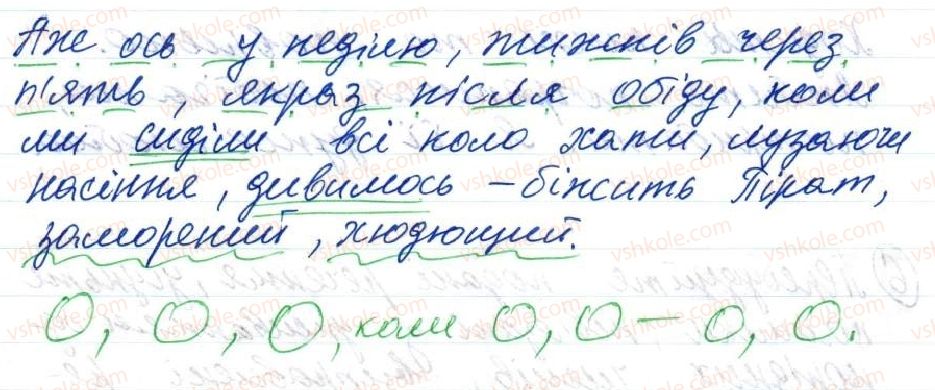 Аж ось у неділю, тижнів через
п'ять, якраз після обіду, коли
ми сиділи всі коло хати, лузаючи
насіння, дивимось – біжить Пірат,
заморений, хюдющий.
О, О, О, коли О, О – О, О.